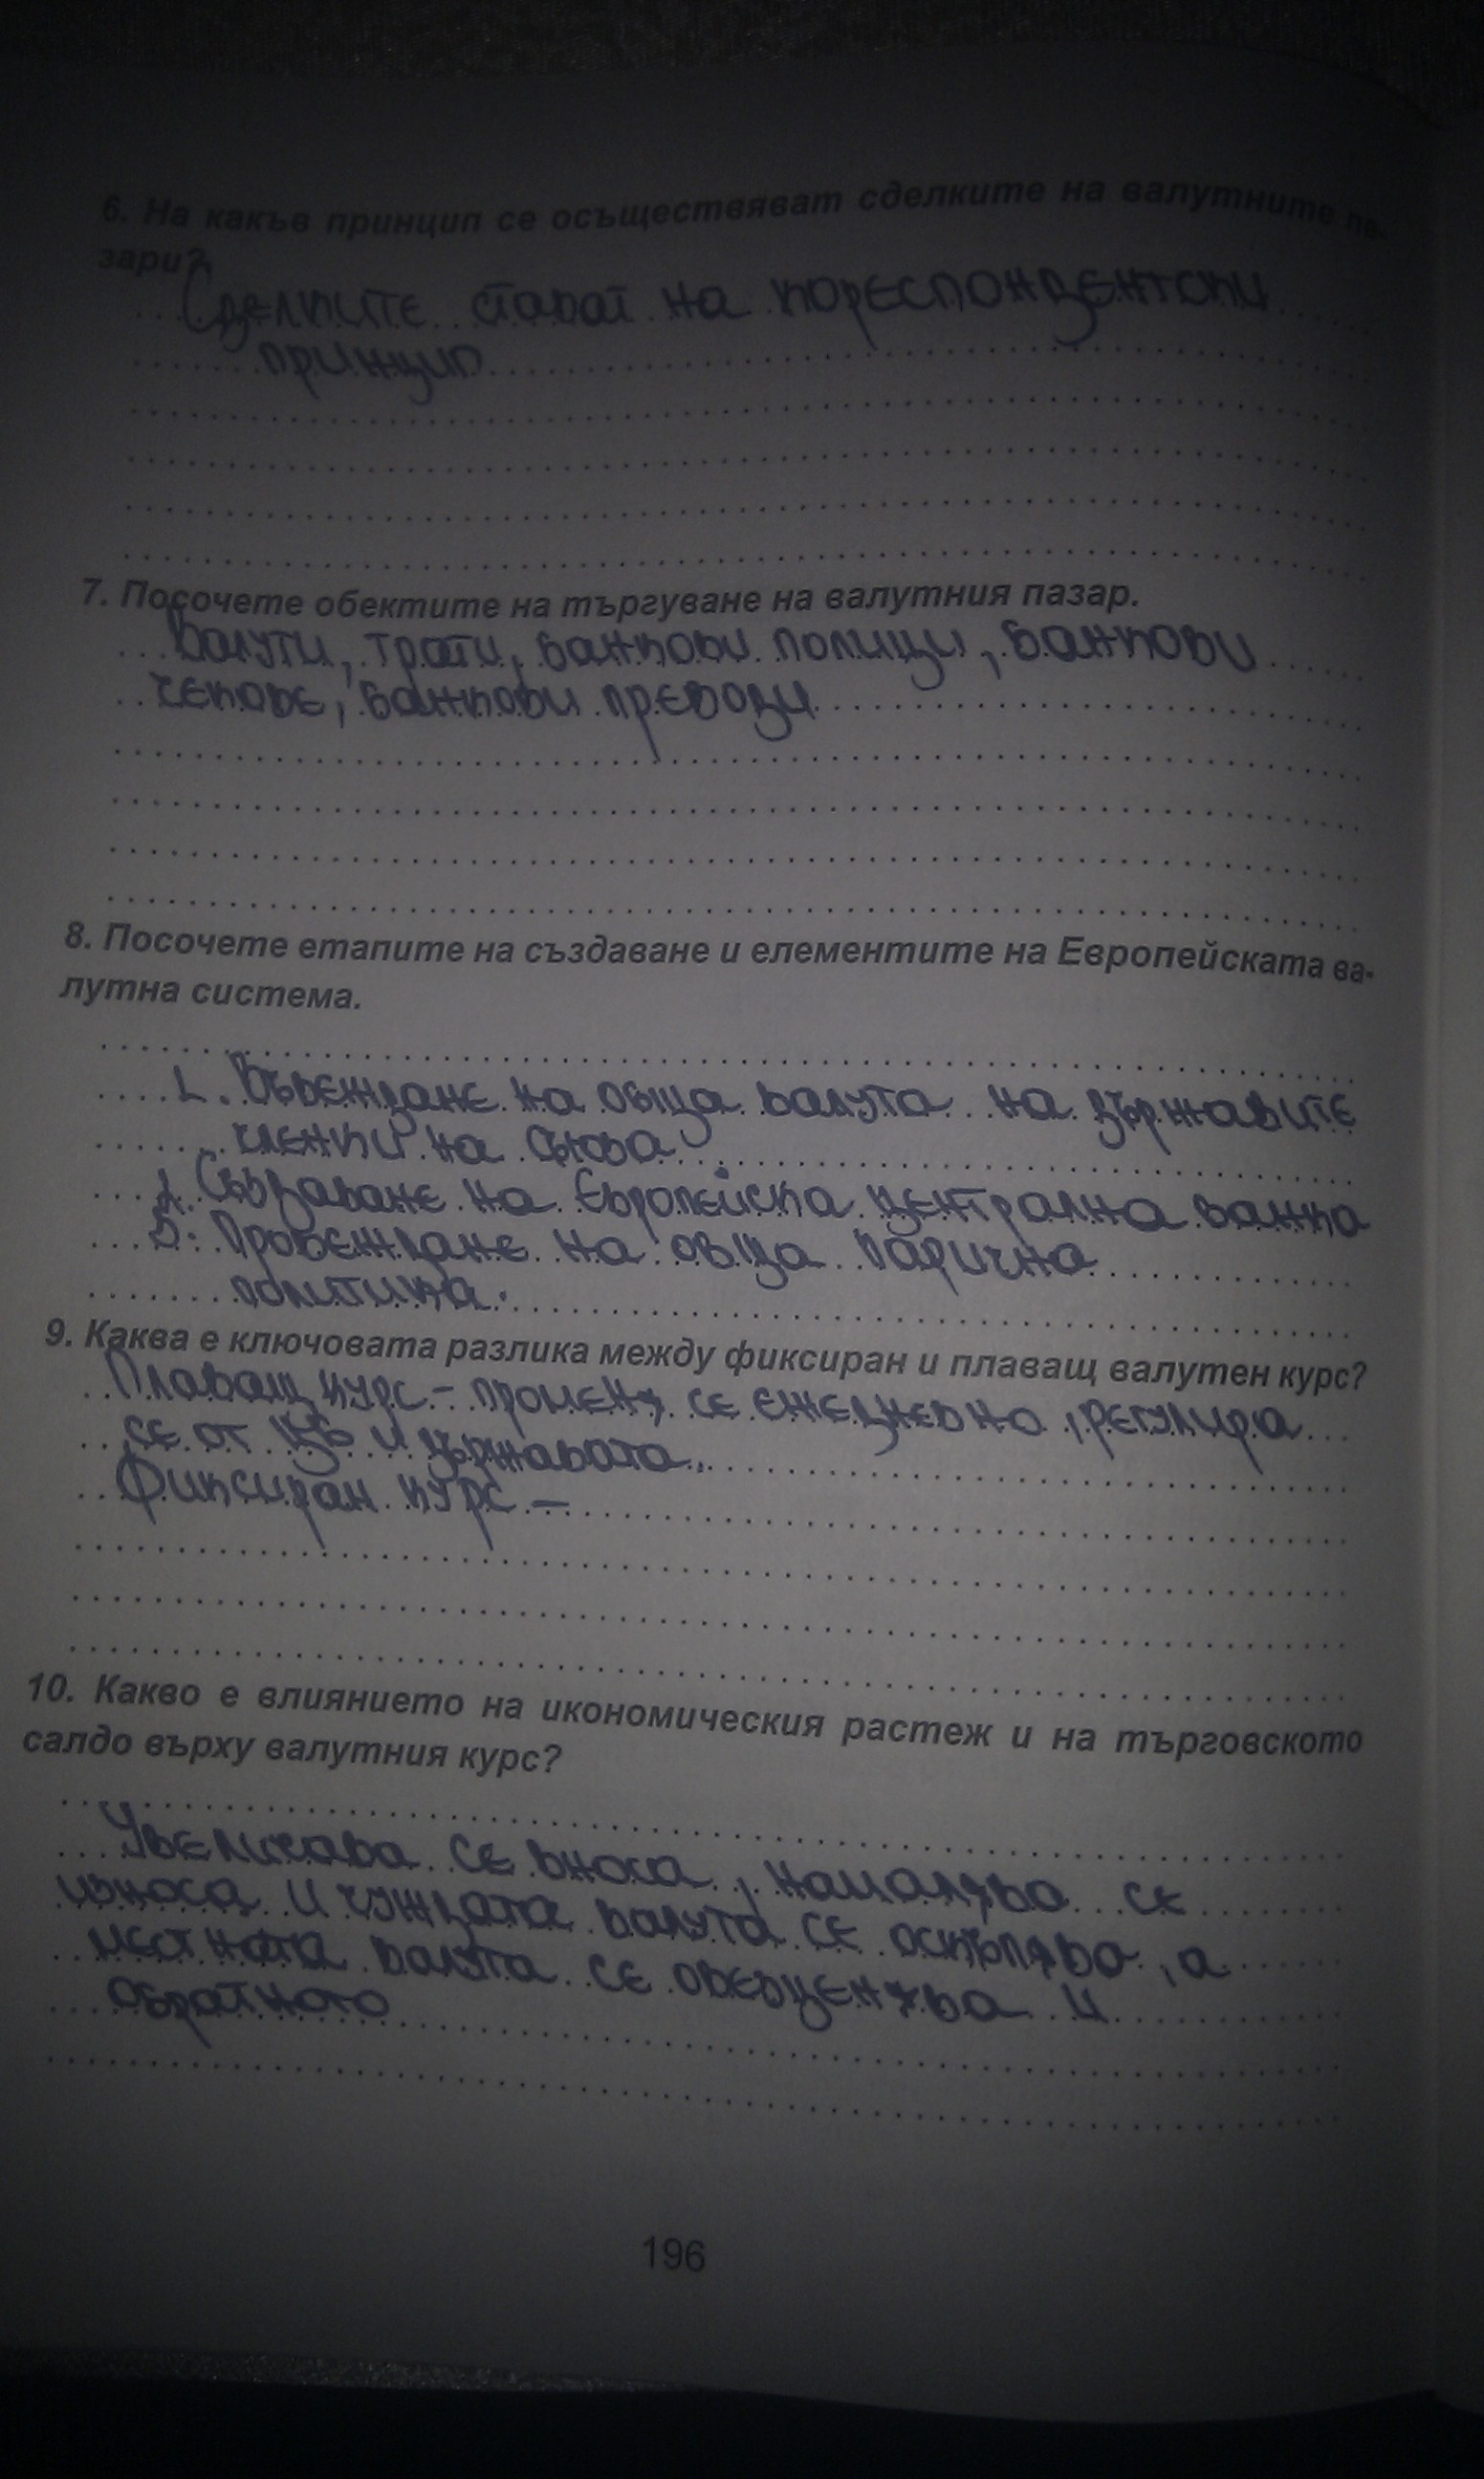 6. На какъв принцип се осъществяват сделките на валутните па-
зари?
Сделките стават на кореспондентски
принцип
7. Посочете обектите на търгуване на валутния пазар.
Валути, трати, банкови полици, банкови
чекове, банкови преводи
8. Посочете етапите на създаване и елементите на Европейската ва-
лутна система.
1. Въвеждане на обща валута на държавите
членки на съюза
2. Създаване на Европейска централна банка
3. Провеждане на обща парична
политика.
9. Каква е ключовата разлика между фиксиран и плаващ валутен курс?
Плаващ курс – променя се ежедневно, регулира
се от ЦБ и държавата.
Фиксиран курс –
10. Какво е влиянието на икономическия растеж и на търговското
салдо върху валутния курс?
Увеличава се вноса, намалява се
износа и чуждата валута се оскъпява, а
местната валута се обезценява и
обратното
196